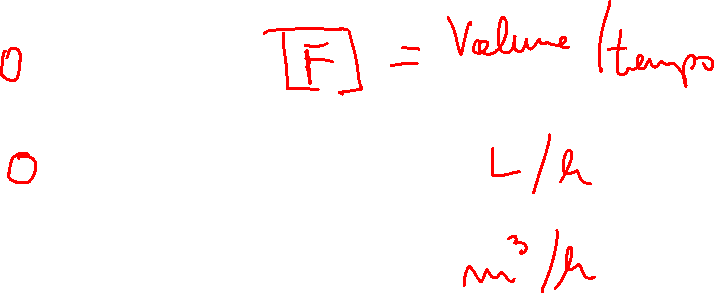 0 [F] = Volume / temps
0 L/h
m³/h